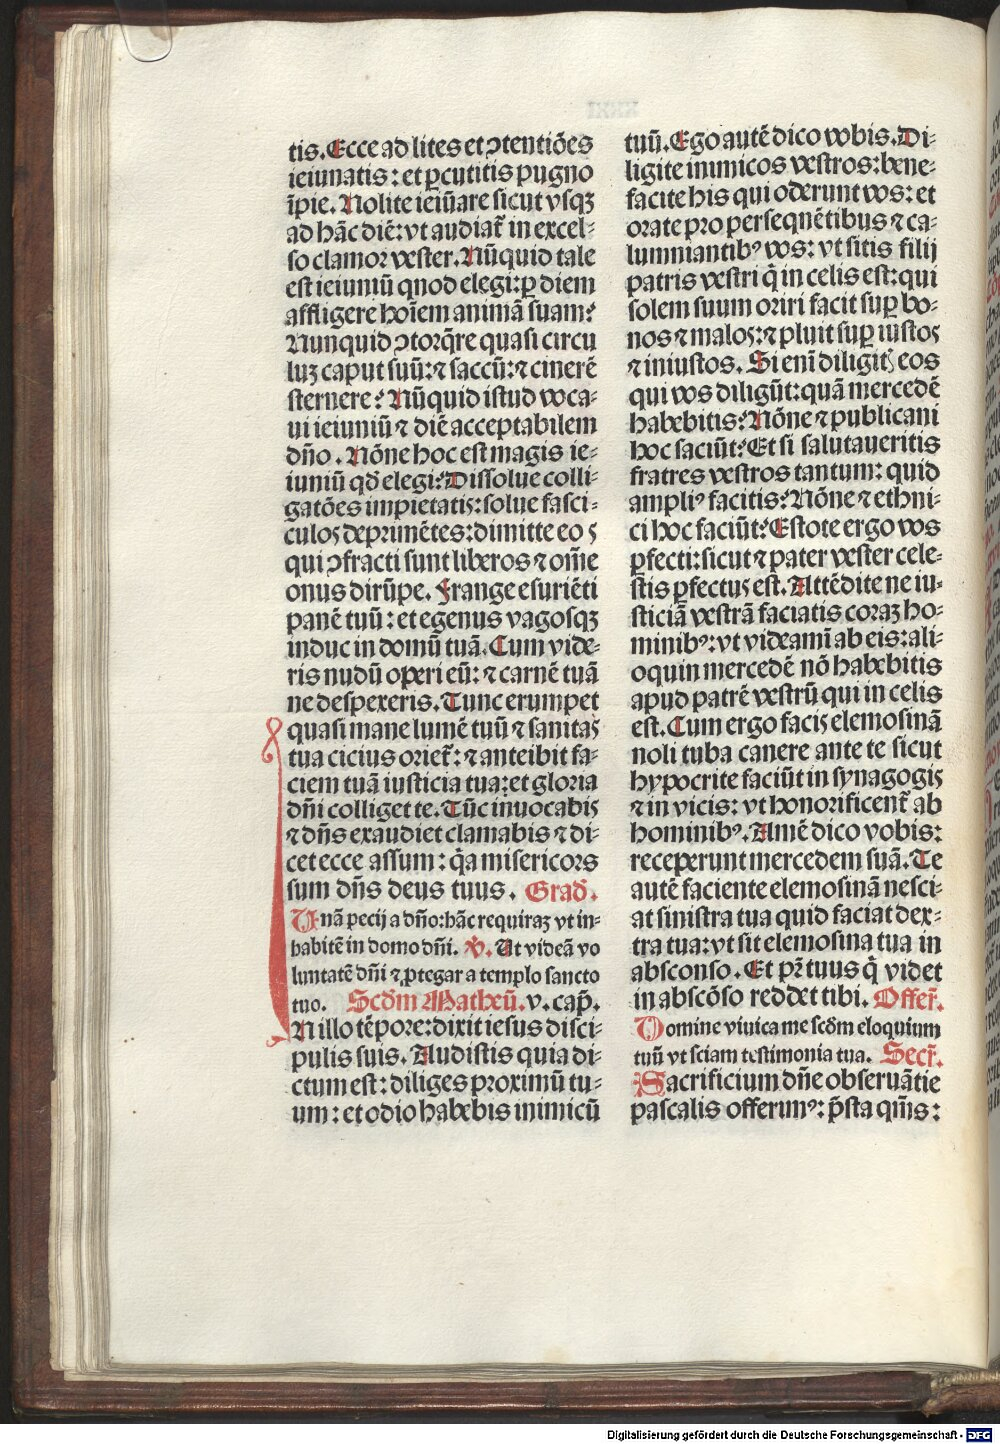 tis. Ecce ad lites et ꝯtentiões
ieiunatis: et ꝑcutitis pugno
ĩpie. Nolite ieiũare sicut vsqꝫ
ad hãc diẽ: vt audiat᷑ in excel⸗
so clamor vester. Nũquid tale
est ieiuniũ qnod elegi: ꝑ diem
affligere hoĩem animã suam?
Nunquid ꝯtorq̃re quasi circu
luꝫ caput suũ: ⁊ saccũ: ⁊ cinerẽ
sternere? Nũquid istud voca⸗
ui ieiuniũ ⁊ diẽ acceptabilem
dño. Nõne hoc est magis ie⸗
iuniũ qd̃ elegi? Dissolue colli⸗
gatões impietatis: solue fasci⸗
culos deprimẽtes: dimitte eos
qui ꝯfracti sunt liberos ⁊ om̃e
onus dirũpe. Frange esuriẽti
panẽ tuũ: et egenus vagosqꝫ
induc in domũ tuã. Cum vide⸗
ris nudũ operi eũ: ⁊ carnẽ tuã
ne despexeris. Tunc erumpet
quasi mane lumẽ tuũ ⁊ sanitas
tua cicius oriet᷑: ⁊ anteibit fa⸗
ciem tuã iusticia tua: et gloria
dñi colliget te. Tũc inuocabis
⁊ dñs exaudiet clamabis ⁊ di⸗
cet ecce assum: q̃a misericors
sum dñs deus tuus. Grad̃.
Unã pecij a dño: hãc requiraꝫ vt in⸗
habitẽ in domo dñi. ℣. Ut videã vo
luntatẽ dñi ⁊ ꝓtegar a templo sancto
tuo. Scd̃m Matheũ. v. cap̃.
IN illo tẽpore: dixit iesus disci⸗
pulis suis. Audistis quia di⸗
ctum est: diliges proximũ tu⸗
um: et odio habebis inimicũ
tuũ. Ego autẽ dico vobis. Di⸗
ligite inimicos vestros: bene⸗
facite his qui oderunt vos: et
orate pro persequẽtibus ⁊ ca⸗
lumniantibꝰ vos: vt sitis filij
patris vestri q̃ in celis est: qui
solem suum oriri facit suꝑ bo⸗
nos ⁊ malos: ⁊ pluit suꝑ iustos
⁊ iniustos. Si enĩ diligitꝭ eos
qui vos diligũt: quã mercedẽ
habebitis? Nõne ⁊ publicani
hoc faciũt? Et si salutaueritis
fratres vestros tantum: quid
ampliꝰ facitis? Nõne ⁊ ethni⸗
ci hoc faciũt? Estote ergo vos
ꝑfecti: sicut ⁊ pater vester cele⸗
stis ꝑfectus est. Attẽdite ne iu⸗
sticiã vestrã faciatis coraꝫ ho⸗
minibꝰ: vt videamĩ ab eis: ali⸗
oquin mercedẽ nõ habebitis
apud patrẽ vestrũ qui in celis
est. Cum ergo facis elemosinã
noli tuba canere ante te sicut
hypocrite faciũt in synagogis
⁊ in vicis: vt honorificent᷑ ab
hominibꝰ. Amẽ dico vobis:
receperunt mercedem suã. Te
autẽ faciente elemosinã nesci⸗
at sinistra tua quid faciat dex⸗
tra tua: vt sit elemosina tua in
absconso. Et pr̃ tuus q̃ videt
in abscõso reddet tibi. Offer̃.
Domine viuica me scd̃m eloquium
tuũ vt sciam testimonia tua. Secr̃.
Sacrificium dñe obseruãtie
pascalis offerimꝰ: p̃sta qm̃s:
Digitalisierung gefördert durch die Deutsche Forschungsgemeinschaft - DFG